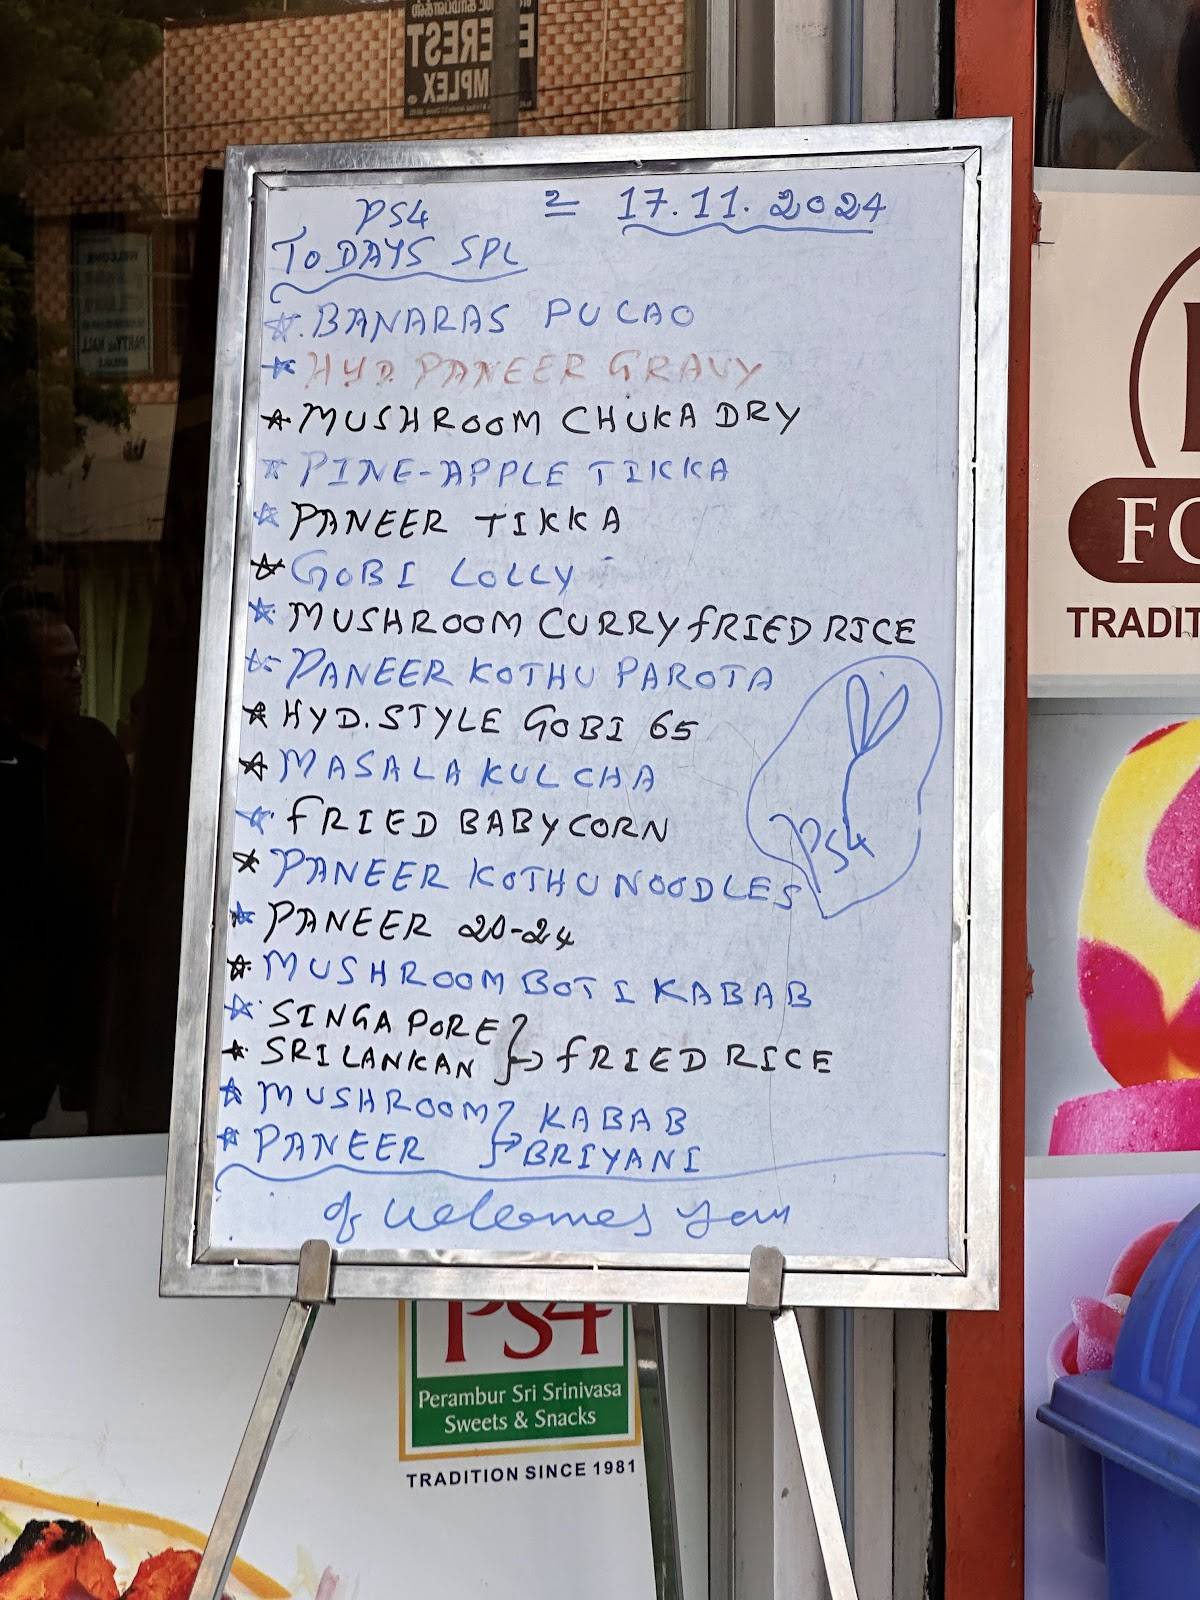 EREST
MPLEX
PS4 = 17.11.2024
TODAYS SPL
BANARAS PULAO
HYD. PANEER GRAVY
MUSHROOM CHUKA DRY
PINE-APPLE TIKKA
PANEER TIKKA
GOBI LOLLY
MUSHROOM CURRY FRIED RICE
PANEER KOTHU PAROTA
HYD. STYLE GOBI 65
MASALA KULCHA
FRIED BABY CORN
PANEER KOTHU NOODLES
PS4
PANEER 20-24
MUSHROOM BOTI KABAB
SINGAPORE
SRILANKAN } → FRIED RICE
MUSHROOM } KABAB
PANEER → BRIYANI
welcomes you
PS4
Perambur Sri Srinivasa
Sweets & Snacks
TRADITION SINCE 1981
FO
TRADIT